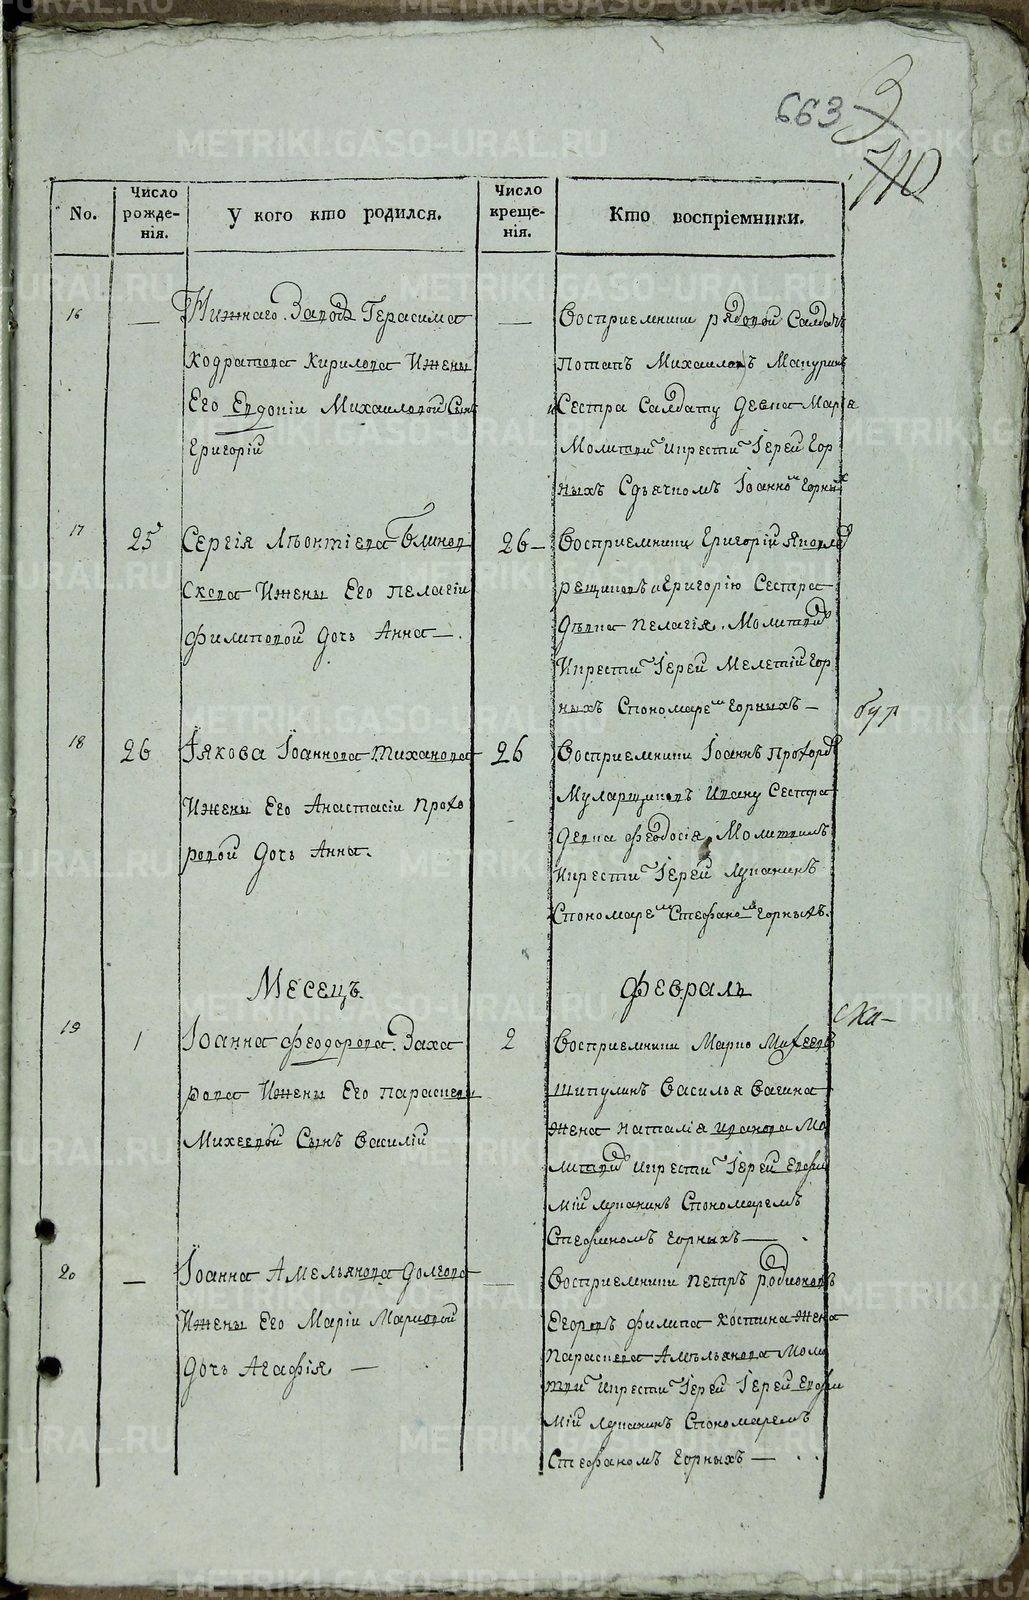 663
110
No.
Число рожденія.
У кого кто родился.
Число крещенія.
Кто воспріемники.
16 — Нижнаго Завода Герасима
Кодратова Кирилова Ижены
Его Евдокіи Михаиловой Сынъ
Григорій
— Восприемники рядовой Салдатъ
Потапъ Михаиловъ Мапуринъ
Сестра Салдату девка Марія
Молитвил и крестил Іерей Гор
ныхъ Сдьячкомъ Іоанном Горных
17 25 Сергія Леонтіева Блинов
скова Ижены Его Пелагіи
Филиповой Дочь Анна —
26 — Восприемники Григорій Яковлев
рещиковъ и Григорію Сестра
Девка Пелагія. Молитвил
И крестил Іерей Мелетій Гор
ныхъ Спономарем Горныхъ —
18 26 Іякова Іоаннова Тиханова
Ижены Его Анастасіи Прохо
ровой Дочь Анна.
26 Восприемники Іоаннъ Прохоров
Муларщиковъ Ивану Сестра
Девка Феодосія. Молитвилъ
И крестил Іерей Лукании
Спономарем Стефаном Горныхъ.
Месецъ
Февраль
19 1 Іоанна Феодорова Заха
рова Ижены Его Парасковіи
Михеевой Сынъ Василій
2 Восприемники Марко Михеевъ
Шипулинъ Василья Вагина
Жена Наталія Иванова Мо
литвил и крестил Іерей Евфи
мій Луканинъ Спономаремъ
Стефаномъ Горныхъ —
20 — Іоанна Амельянова Долгова
Ижены Его Маріи Марковой
Дочь Агафія —
— Восприемники Петръ Родионовъ
Егоровъ Филипа Костина Жена
Парасковія Амельянова Моли
твил и крестил Іерей Іерей Евфи
мій Луканинъ Спономаремъ
Стефаномъ Горныхъ —
METRIKI.GASO-URAL.RU